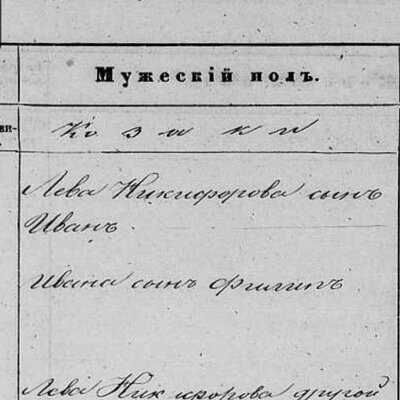 Мужескій полъ.
ви-
Козаки
Лева Никифорова сынъ
Иванъ.
Ивана сынъ Филипъ
Лева Никифорова другой